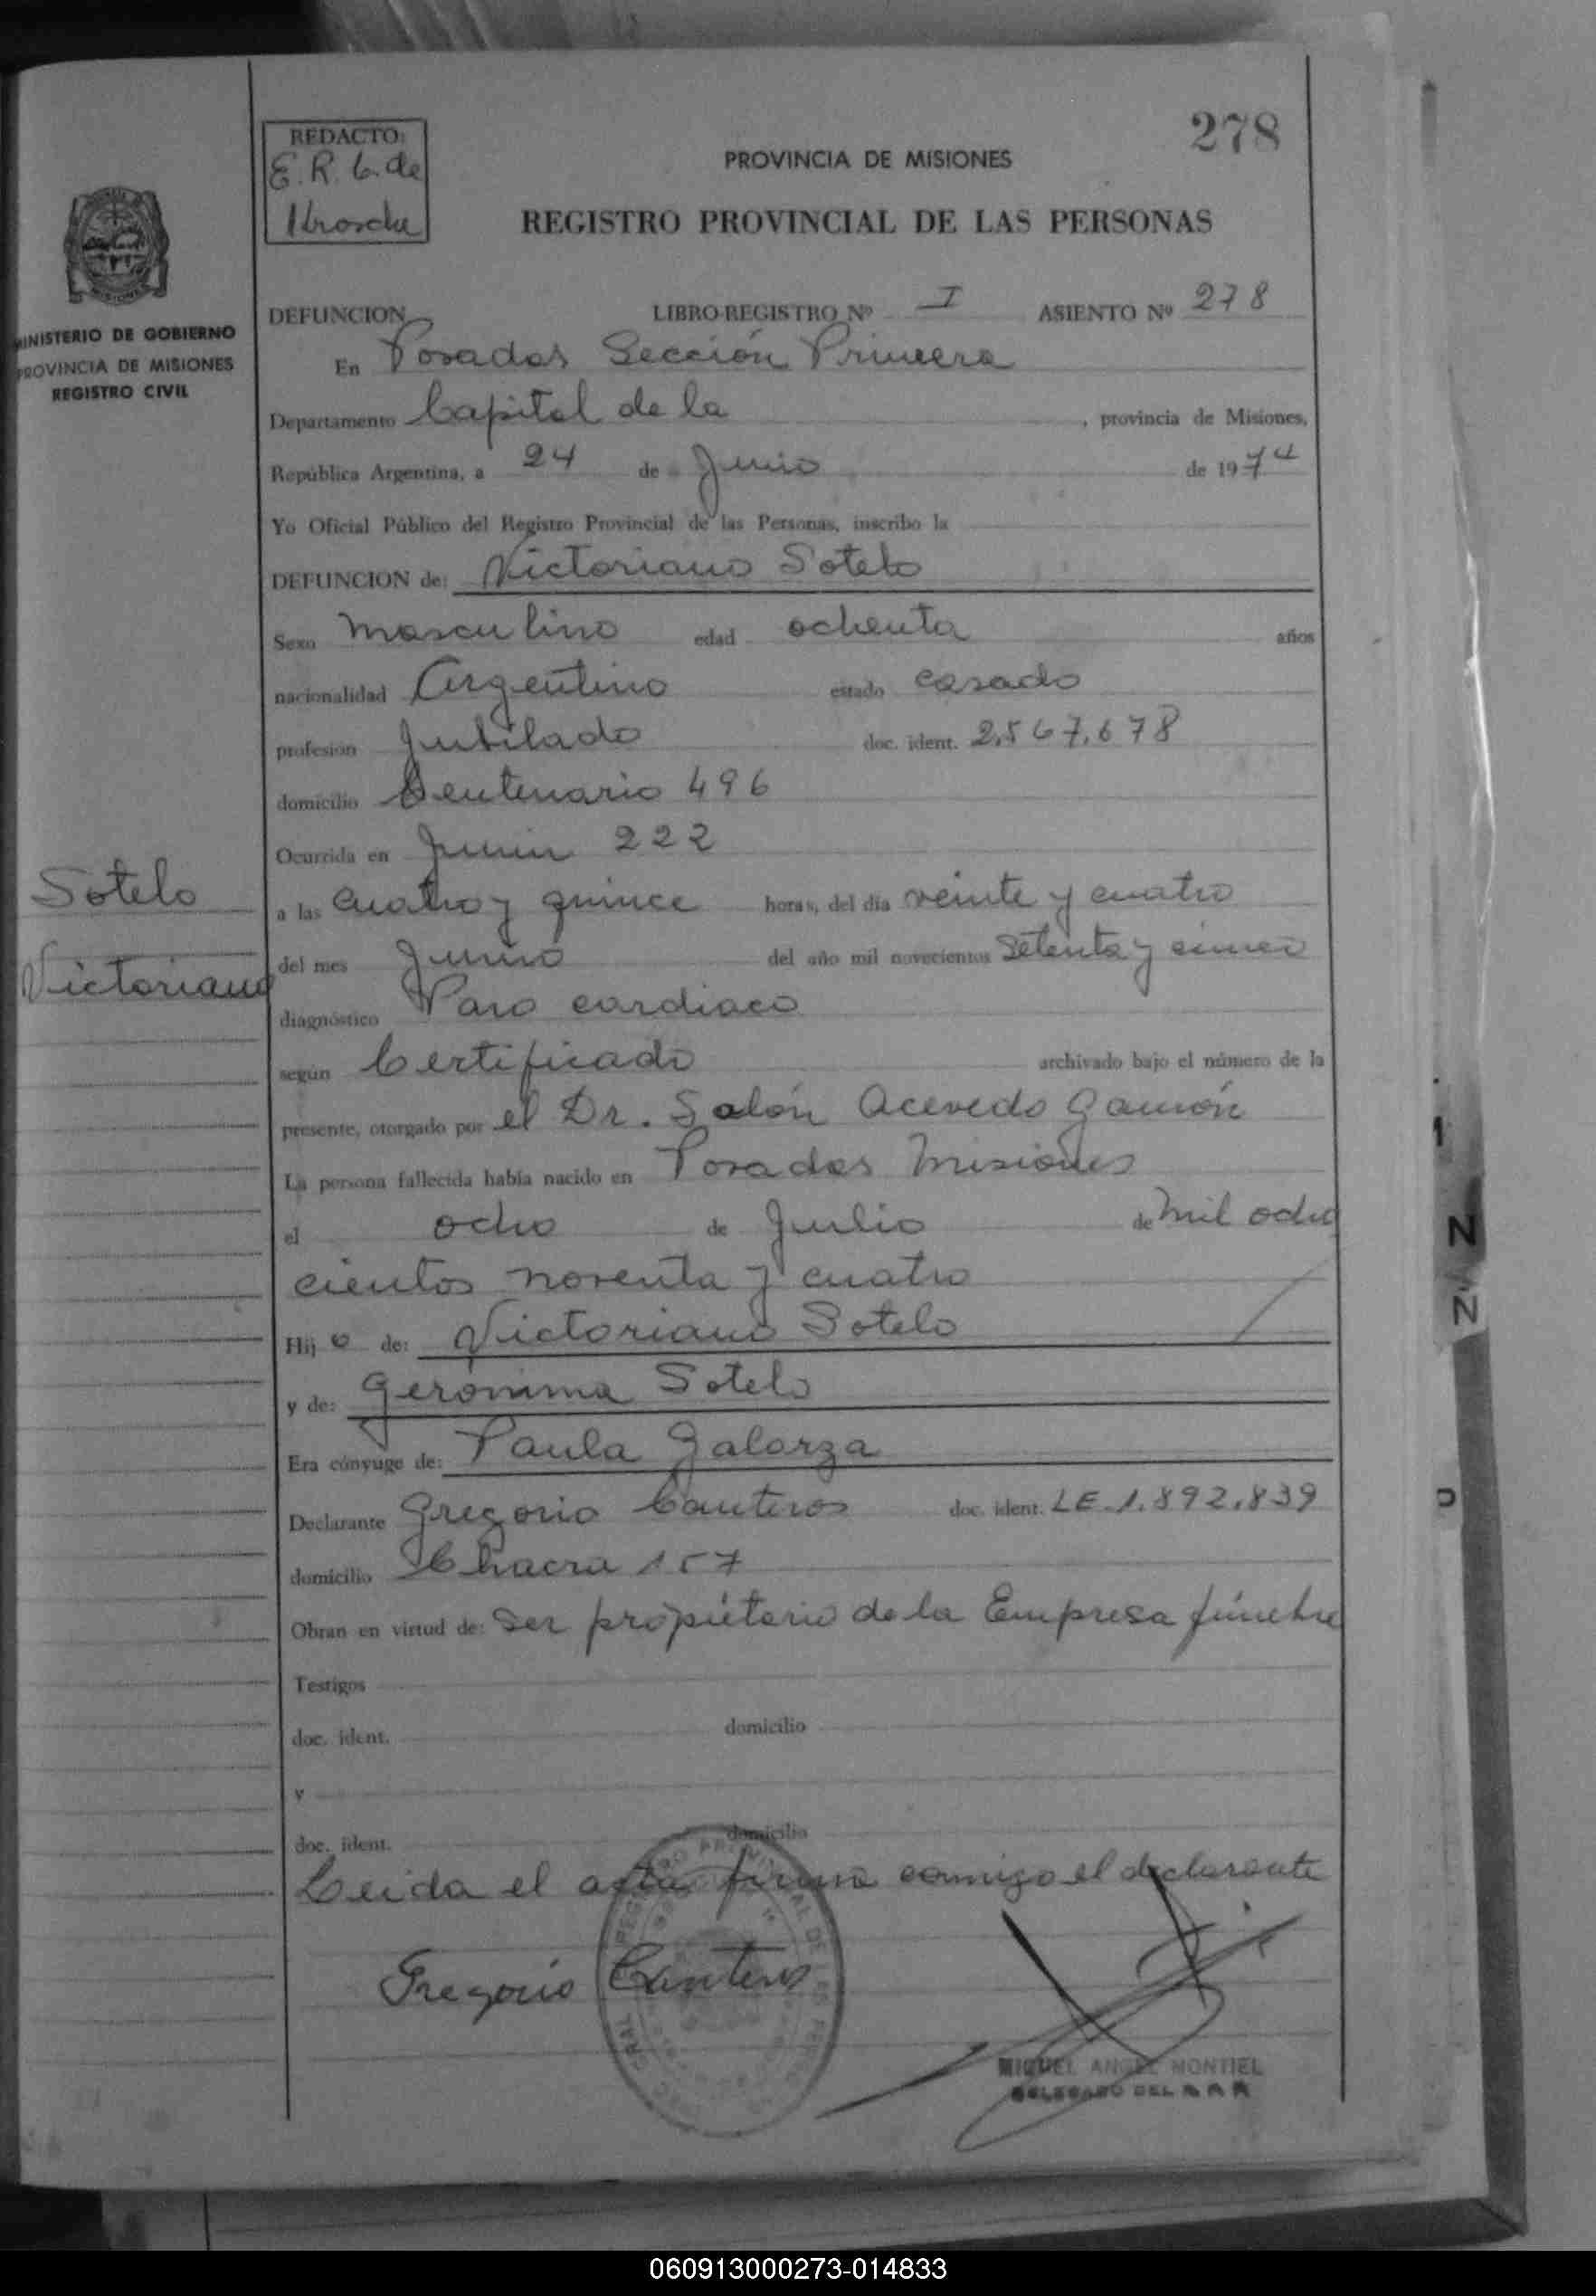 278
REDACTO:
E. R. G. de
PROVINCIA DE MISIONES
REGISTRO PROVINCIAL DE LAS PERSONAS
MINISTERIO DE GOBIERNO
PROVINCIA DE MISIONES
REGISTRO CIVIL
DEFUNCION LIBRO-REGISTRO Nº I ASIENTO Nº 278
En Posadas Sección Primera
Departamento Capital de la , provincia de Misiones,
República Argentina, a 24 de Junio de 1974
Yo Oficial Público del Registro Provincial de las Personas, inscribo la
DEFUNCION de: Victoriano Sotelo
Sexo Masculino edad ochenta años
nacionalidad Argentino estado casado
profesión Jubilado doc. ident. 2.567.678
domicilio Centenario 496
Ocurrida en Junin 222
Sotelo
Victoriano
a las cuatro y quince horas, del día veinte y cuatro
del mes Junio del año mil novecientos Setenta y cinco
diagnóstico Paro cardiaco
según Certificado archivado bajo el número de la
presente, otorgado por el Dr. Salón Acevedo Gamón
La persona fallecida había nacido en Posadas Misiones
el ocho de Julio de Mil ocho
cientos noventa y cuatro
Hij o de: Victoriano Sotelo
y de: Gerónima Sotelo
Era cónyuge de: Paula Galarza
Declarante Gregorio Canteros doc. ident. LE-1.892.839
domicilio Chacra 157
Obran en virtud de: Ser propietario de la Empresa fúnebre
Testigos
doc. ident. domicilio
y
doc. ident. domicilio
Leida el acta firma conmigo el declarante
Gregorio Canteros
MIGUEL ANGEL MONTIEL
DELEGADO DEL
060913000273-014833